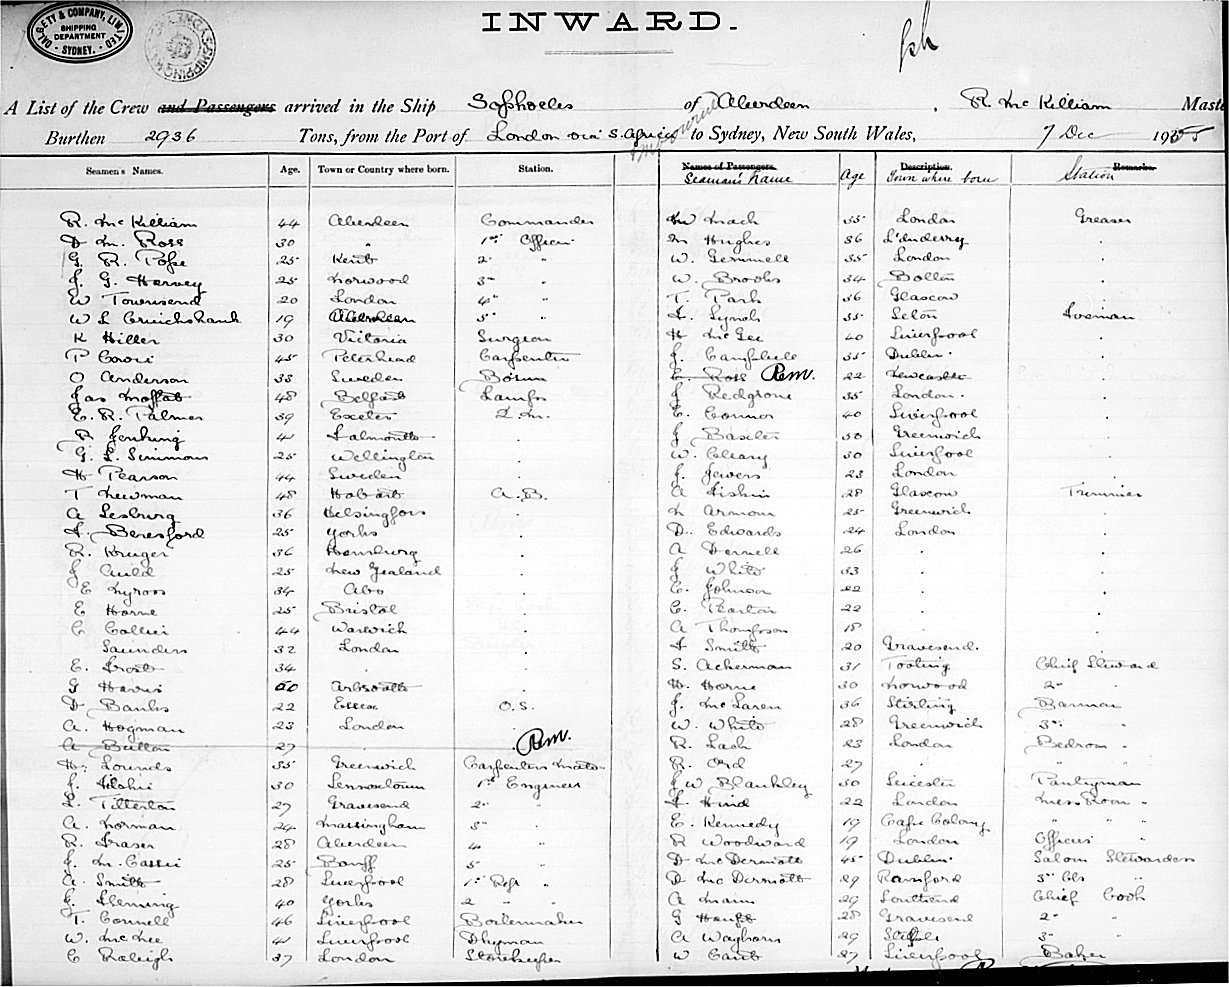 INWARD.
DALGETY & COMPANY, LIMITED
SHIPPING
DEPARTMENT
SYDNEY.
A List of the Crew and Passengers arrived in the Ship Sophocles of Aberdeen, R. McKilliam Maste
Burthen 2936 Tons, from the Port of London via S. Africa to Sydney, New South Wales, 7 Dec 19
Seamen's Names. Age. Town or Country where born. Station. Names of Passengers. Description. Remarks.
Seaman's Name Age Town where born Station
R. McKilliam 44 Aberdeen Commander
D M. Ross 30 " 1st Officer
G. R. Pope 25 Kent 2 "
J. G. Harvey 25 Norwood 3 "
W Townsend 20 London 4 "
W L Cruickshank 19 Aberdeen 5 "
K Hiller 30 Victoria Surgeon
P Cowie 45 Peterhead Carpenter
O Anderson 33 Sweden Bosun
Jas Moffat 48 Belfast Lamps
E. R. Palmer 39 Exeter
R Jenking 41 Falmouth .
G. L. Simmons 25 Wellington .
H Pearson 44 Sweden .
T Newman 48 Hobart A.B.
A Lesburg 36 Helsingfors .
F. Beresford 25 Yorks .
R. Kruger 36 Hamburg .
J Auld 25 New Zealand .
E Nyroos 34 Abo .
E Horne 25 Bristol .
C Collier 44 Warwick .
Saunders 32 London .
E. Frost 34 . .
G Harris 60 Arbroath .
D Banks 22 Essex O.S.
A. Hogman 23 London .
A Button 27 . .
H. Lounds 55 Greenwich Carpenters Mate
J. 30 Lennoxtown 1st Engineer
L. Titterton 27 Gravesend 2 "
A. Norman 24 Massingham 3 "
R. Fraser 28 Aberdeen 4 "
J. M. Cassie 25 Banff 5 "
A. Smith 28 Liverpool 1st Refr "
J. Fleming 40 Yorks 2 " "
T. Connell 46 Liverpool Boilermaker
W. McKee 41 Liverpool
C Raleigh 37 London Storekeeper
W Mach 35 London Greaser
M Hughes 36 L'nderry .
W. Gemmell 35 London .
W. Brooks 34 Bolton .
T. Park 36 Glascow .
F. Lynch 35 Seton Fireman
H McGee 40 Liverpool .
J. Campbell 35 Dublin .
C. Ross 22 Newcastle .
J Redgrove 35 London .
C. Connor 40 Liverpool .
J Baxter 30 Greenwich .
W. Cleary 30 Liverpool .
J. Jewers 23 London .
A 28 Glascow Trimmer
L Armour 25 Greenwich .
D. Edwards 24 London .
A Dernell 26 . .
J White 33 . .
E. Johnson 22 . .
C. 22 . .
A Thompson 18 . .
F Smith 20 Gravesend .
S. Ackerman 31 Tooting Chief Steward
H. Horne 30 Norwood 2 "
J. McLaren 36 Stirling Barman
W. White 28 Greenwich 3rd "
R. Lach 23 London Bedroom "
R. Ord 27 . " "
J W Blankley 30 Leicester Pantryman
F Hind 22 London Mess Room "
E. Kennedy 19 Cape Colony " "
R Woodward 19 London Officers "
D McDermott 45 Dublin Saloon Stewardess
D McDermott 29 Rainford 3rd Cls "
A Mann 29 Southend Chief Cook
G 28 Gravesend 2 "
A Waghorn 29 3 "
W Cant 27 Liverpool Baker